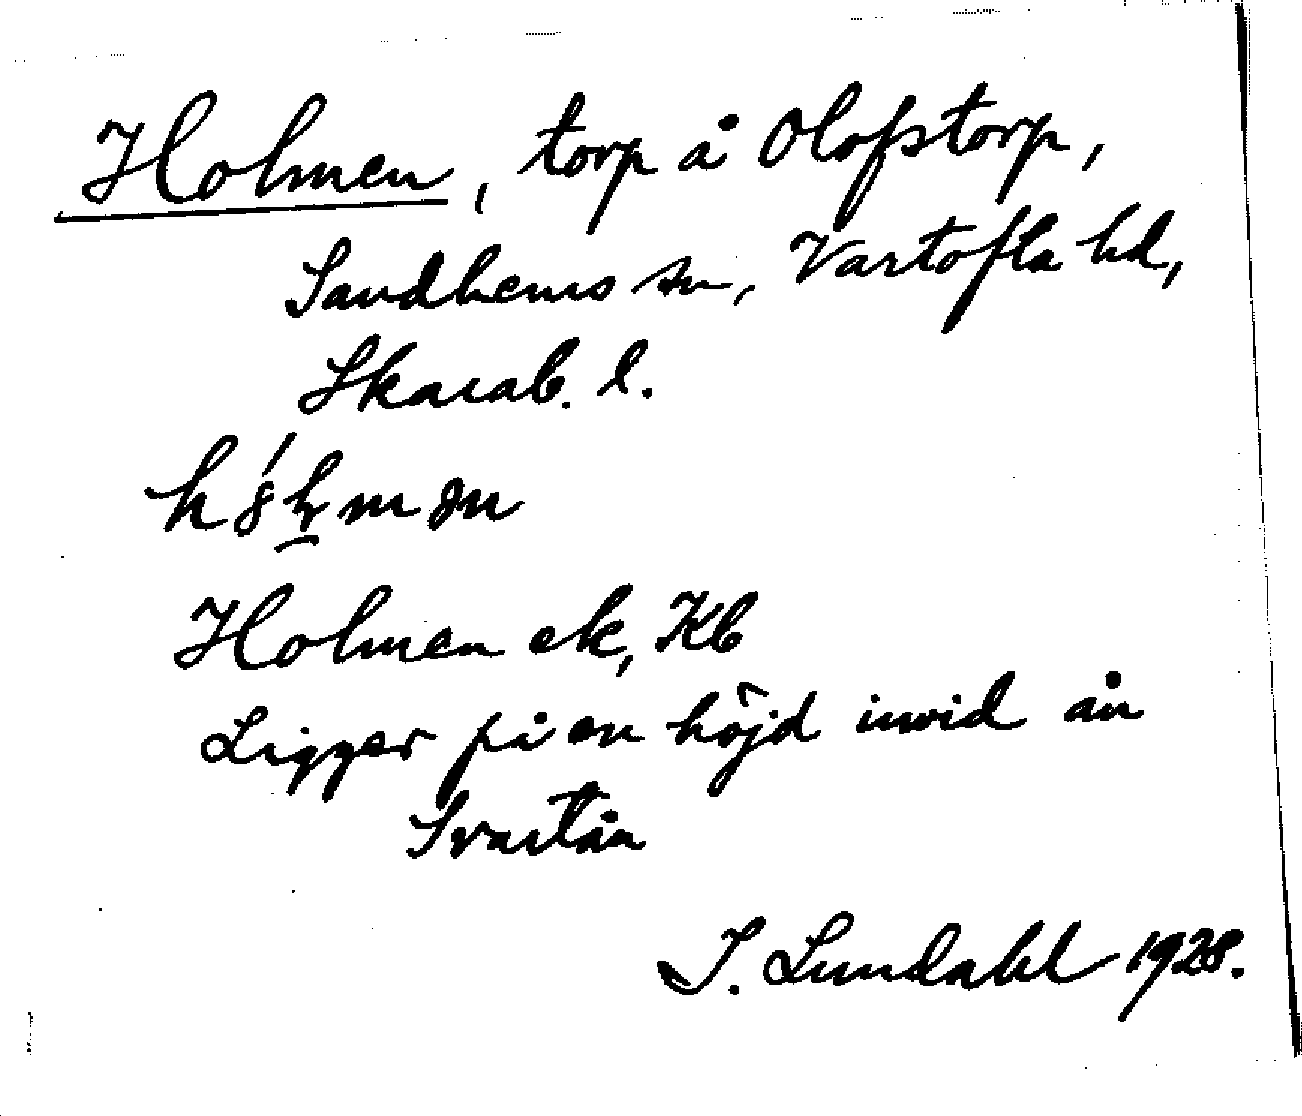 Holmen, torp å Olofstorp,
Sandhems sn, Vartofta hd,
Skarab. l.
Holmen ek, Kb
Ligger på en höjd invid ån
Svartån
I. Lundahl 1928.